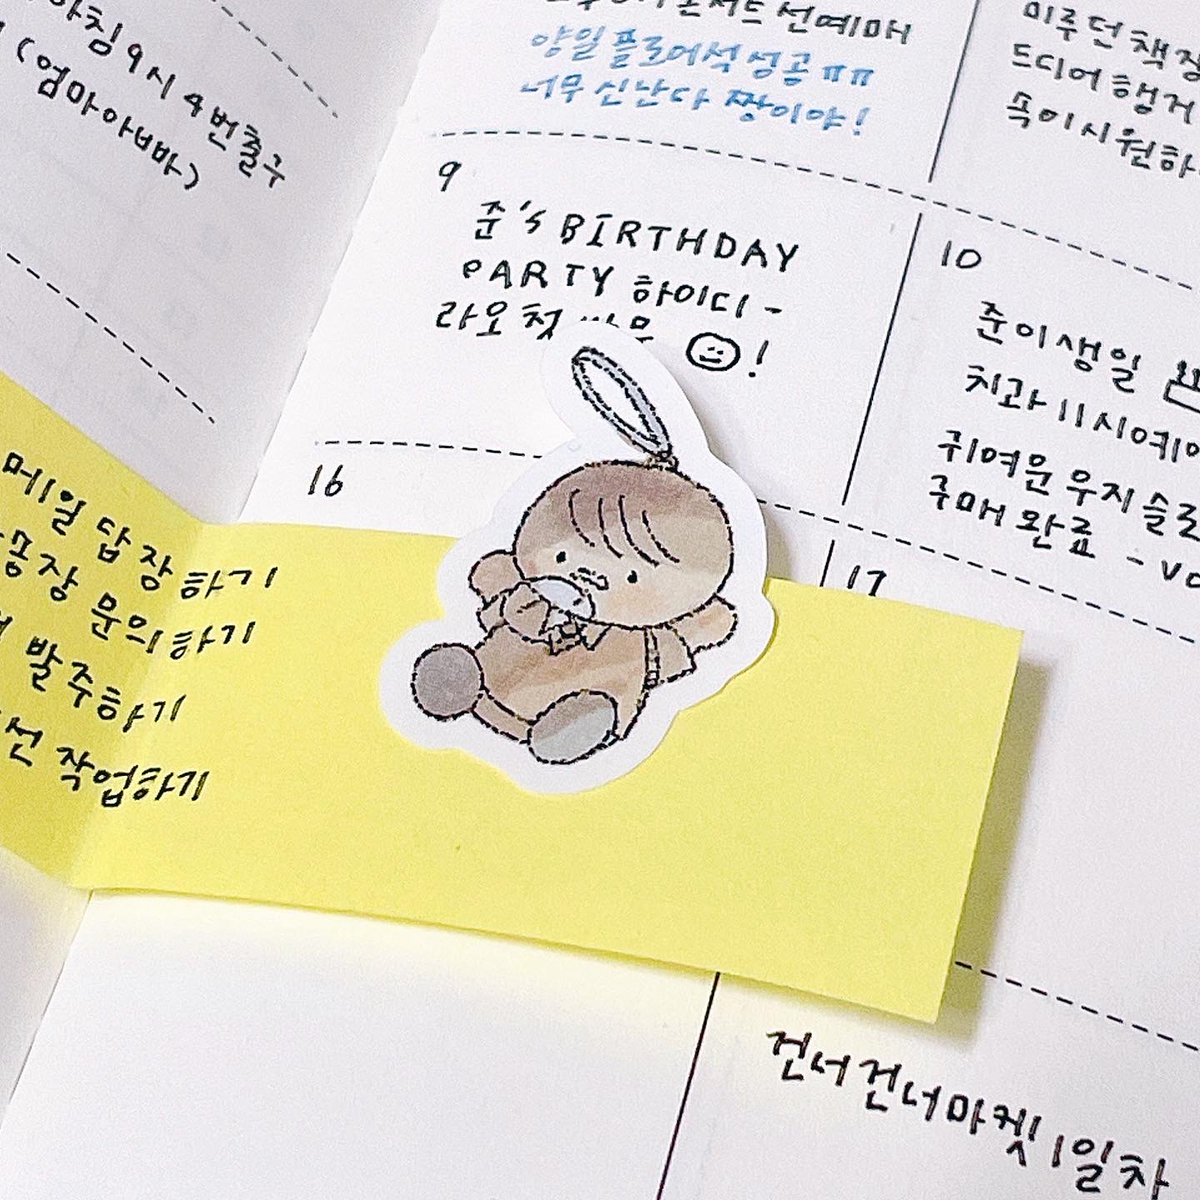 아침 9시 4번출구
(엄마아빠)
콘서트 선예매
양일 플로어석 성공 ㅠㅠ
너무 신난다 짱이야!
미루던 책장
드디어 했거
속이 시원하
9
준's BIRTHDAY
PARTY 하이디-
라오 첫 !
10
준이 생일
치과 11시예약
귀여운 우지 슬로
구매 완료 -
16
17
메일 답장하기
문의하기
발주하기
작업하기
건너건너마켓 1일차